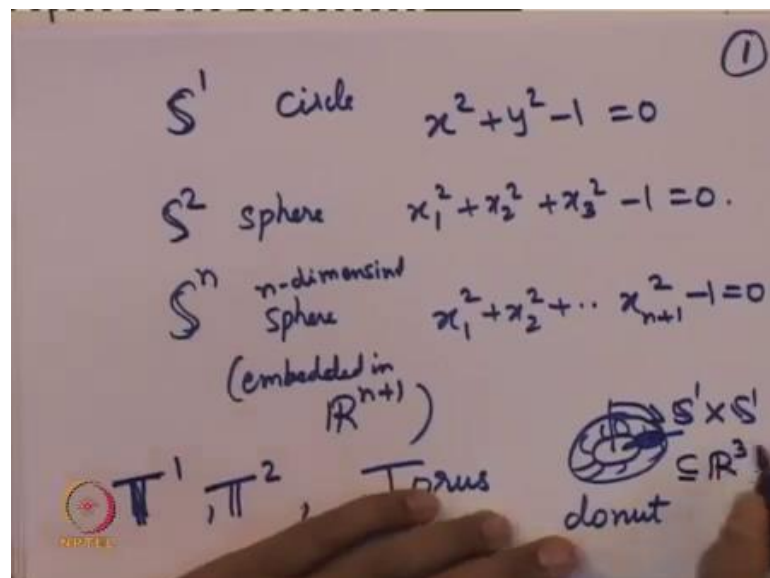 ①
S¹ circle x² + y² - 1 = 0
S² sphere x₁² + x₂² + x₃² - 1 = 0.
Sⁿ n-dimensind sphere x₁² + x₂² + ·· x²ₙ₊₁ - 1 = 0
(embedded in
ℝⁿ⁺¹)
S¹ × S¹
⊆ ℝ³
T¹, T², Torus
donut
NPTEL